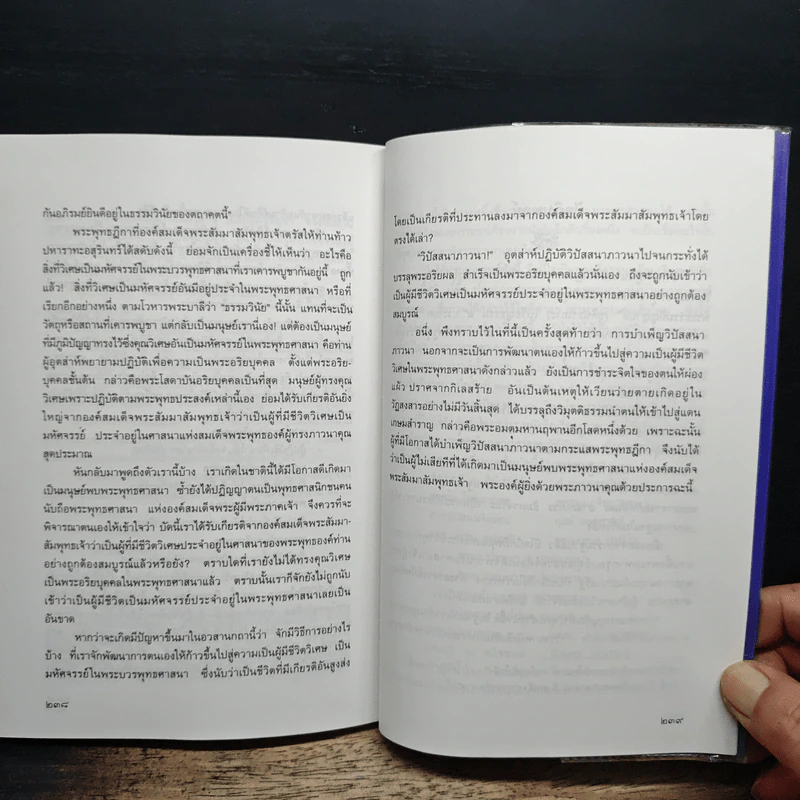 กันอภิรมย์ยินดีอยู่ในธรรมวินัยของตถาคตนี้"
พระพุทธฎีกาที่องค์สมเด็จพระสัมมาสัมพุทธเจ้าตรัสให้ท่านท้าว
ปหาราทะอสุรินทร์ได้สดับดังนี้ ย่อมจักเป็นเครื่องชี้ให้เห็นว่า อะไรคือ
สิ่งที่วิเศษเป็นมหัศจรรย์ในพระบวรพุทธศาสนาที่เราเคารพบูชากันอยู่นี้ ถูก
แล้ว! สิ่งที่วิเศษเป็นมหัศจรรย์อันมีอยู่ประจำในพระพุทธศาสนา หรือที่
เรียกอีกอย่างหนึ่ง ตามโวหารพระบาลีว่า "ธรรมวินัย" นี้นั้น แทนที่จะเป็น
วัตถุหรือสถานที่เคารพบูชา แต่กลับเป็นมนุษย์เรานี่เอง! แต่ต้องเป็นมนุษย์
ที่มีภูมิปัญญาทรงไว้ซึ่งคุณวิเศษอันเป็นมหัศจรรย์ในพระพุทธศาสนา คือท่าน
ผู้อุตส่าห์พยายามปฏิบัติเพื่อความเป็นพระอริยบุคคล ตั้งแต่พระอริย-
บุคคลชั้นต้น กล่าวคือพระโสดาบันอริยบุคคลเป็นที่สุด มนุษย์ผู้ทรงคุณ
วิเศษเพราะปฏิบัติตามพระพุทธประสงค์เหล่านี้เอง ย่อมได้รับเกียรติอันยิ่ง
ใหญ่จากองค์สมเด็จพระสัมมาสัมพุทธเจ้าว่าเป็นผู้ที่มีชีวิตวิเศษเป็น
มหัศจรรย์ ประจำอยู่ในศาสนาแห่งสมเด็จพระพุทธองค์ผู้ทรงภาวนาคุณ
สุดประมาณ
หันกลับมาพูดถึงตัวเรานี้บ้าง เราเกิดในชาตินี้ได้มีโอกาสดีเกิดมา
เป็นมนุษย์พบพระพุทธศาสนา ซ้ำยังได้ปฏิญญาตนเป็นพุทธศาสนิกชนคน
นับถือพระพุทธศาสนา แห่งองค์สมเด็จพระผู้มีพระภาคเจ้า จึงควรที่จะ
พิจารณาตนเองให้เข้าใจว่า บัดนี้เราได้รับเกียรติจากองค์สมเด็จพระสัมมา-
สัมพุทธเจ้าว่าเป็นผู้ที่มีชีวิตวิเศษประจำอยู่ในศาสนาของพระพุทธองค์ท่าน
อย่างถูกต้องสมบูรณ์แล้วหรือยัง? ตราบใดที่เรายังไม่ได้ทรงคุณวิเศษ
เป็นพระอริยบุคคลในพระพุทธศาสนาแล้ว ตราบนั้นเราก็จักยังไม่ถูกนับ
เข้าว่าเป็นผู้มีชีวิตเป็นมหัศจรรย์ประจำอยู่ในพระพุทธศาสนาเลยเป็น
อันขาด
หากว่าจะเกิดมีปัญหาขึ้นมาในอวสานกถานี้ว่า จักมีวิธีการอย่างไร
บ้าง ที่เราจักพัฒนาการตนเองให้ก้าวขึ้นไปสู่ความเป็นผู้มีชีวิตวิเศษ เป็น
มหัศจรรย์ในพระบวรพุทธศาสนา ซึ่งนับว่าเป็นชีวิตที่มีเกียรติอันสูงส่ง
๒๓๘
โดยเป็นเกียรติที่ประทานลงมาจากองค์สมเด็จพระสัมมาสัมพุทธเจ้าโดย
ตรงได้เล่า?
"วิปัสสนาภาวนา!" อุตส่าห์ปฏิบัติวิปัสสนาภาวนาไปจนกระทั่งได้
บรรลุพระอริยผล สำเร็จเป็นพระอริยบุคคลแล้วนั่นเอง ถึงจะถูกนับเข้าว่า
เป็นผู้มีชีวิตวิเศษเป็นมหัศจรรย์ประจำอยู่ในพระพุทธศาสนาอย่างถูกต้อง
สมบูรณ์
อนึ่ง พึงทราบไว้ในที่นี้เป็นครั้งสุดท้ายว่า การบำเพ็ญวิปัสสนา
ภาวนา นอกจากจะเป็นการพัฒนาตนเองให้ก้าวขึ้นไปสู่ความเป็นผู้มีชีวิต
วิเศษในพระพุทธศาสนาดังกล่าวแล้ว ยังเป็นการชำระจิตใจของตนให้ผ่อง
แผ้ว ปราศจากกิเลสร้าย อันเป็นต้นเหตุให้เวียนว่ายตายเกิดอยู่ใน
วัฏสงสารอย่างไม่มีวันสิ้นสุด ได้บรรลุถึงวิมุตติธรรมนำตนให้เข้าไปสู่แดน
เกษมสำราญ กล่าวคือพระอมตมหานฤพานอีกโสดหนึ่งด้วย เพราะฉะนั้น
ผู้ที่มีโอกาสได้บำเพ็ญวิปัสสนาภาวนาตามกระแสพระพุทธฎีกา จึงนับได้
ว่าเป็นผู้ไม่เสียทีที่ได้เกิดมาเป็นมนุษย์พบพระพุทธศาสนาแห่งองค์สมเด็จ
พระสัมมาสัมพุทธเจ้า พระองค์ผู้ยิ่งด้วยพระภาวนาคุณด้วยประการฉะนี้
๒๓๙